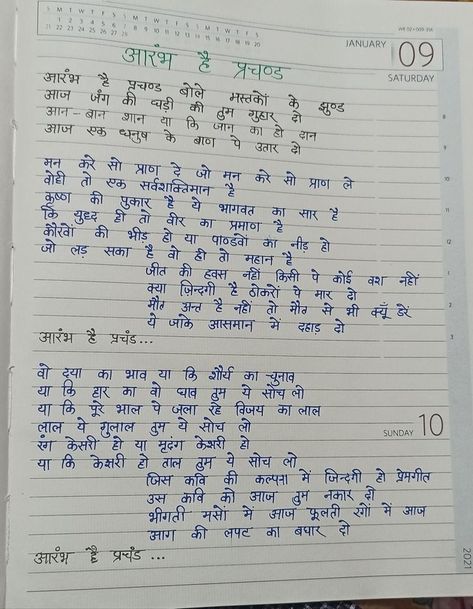 S M T W T F S S M T W T F S S M T W T F S
JANUARY 09
SATURDAY
आरंभ है प्रचण्ड
आरंभ है प्रचण्ड बोले मस्तकों के झुण्ड
आज जंग की घड़ी की तुम गुहार दो
आन-बान शान या कि जान का हो दान
आज एक धनुष के बाण पे उतार दो
मन करे सो प्राण दे जो मन करे सो प्राण ले
वोही तो एक सर्वशक्तिमान है
कृष्ण की पुकार है ये भागवत का सार है
कि युद्ध ही तो वीर का प्रमाण है
कौरवों की भीड़ हो या पाण्डवों का नीड़ हो
जो लड़ सका है वो ही तो महान है
जीत की हवस नहीं किसी पे कोई वश नहीं
क्या ज़िन्दगी है ठोकरों पे मार दो
मौत अन्त है नहीं तो मौत से भी क्यूँ डरें
ये जाके आसमान में दहाड़ दो
आरंभ है प्रचंड...
वो दया का भाव या कि शौर्य का चुनाव
या कि हार का वो घाव तुम ये सोच लो
या कि पूरे भाल पे जला रहे विजय का लाल
लाल ये गुलाल तुम ये सोच लो
SUNDAY 10
रंग केसरी हो या मृदंग केसरी हो
या कि केसरी हो ताल तुम ये सोच लो
जिस कवि की कल्पना में ज़िन्दगी हो प्रेमगीत
उस कवि को आज तुम नकार दो
भीगती मसों में आज फूलती रगों में आज
आग की लपट का बघार दो
आरंभ है प्रचंड ...
2021